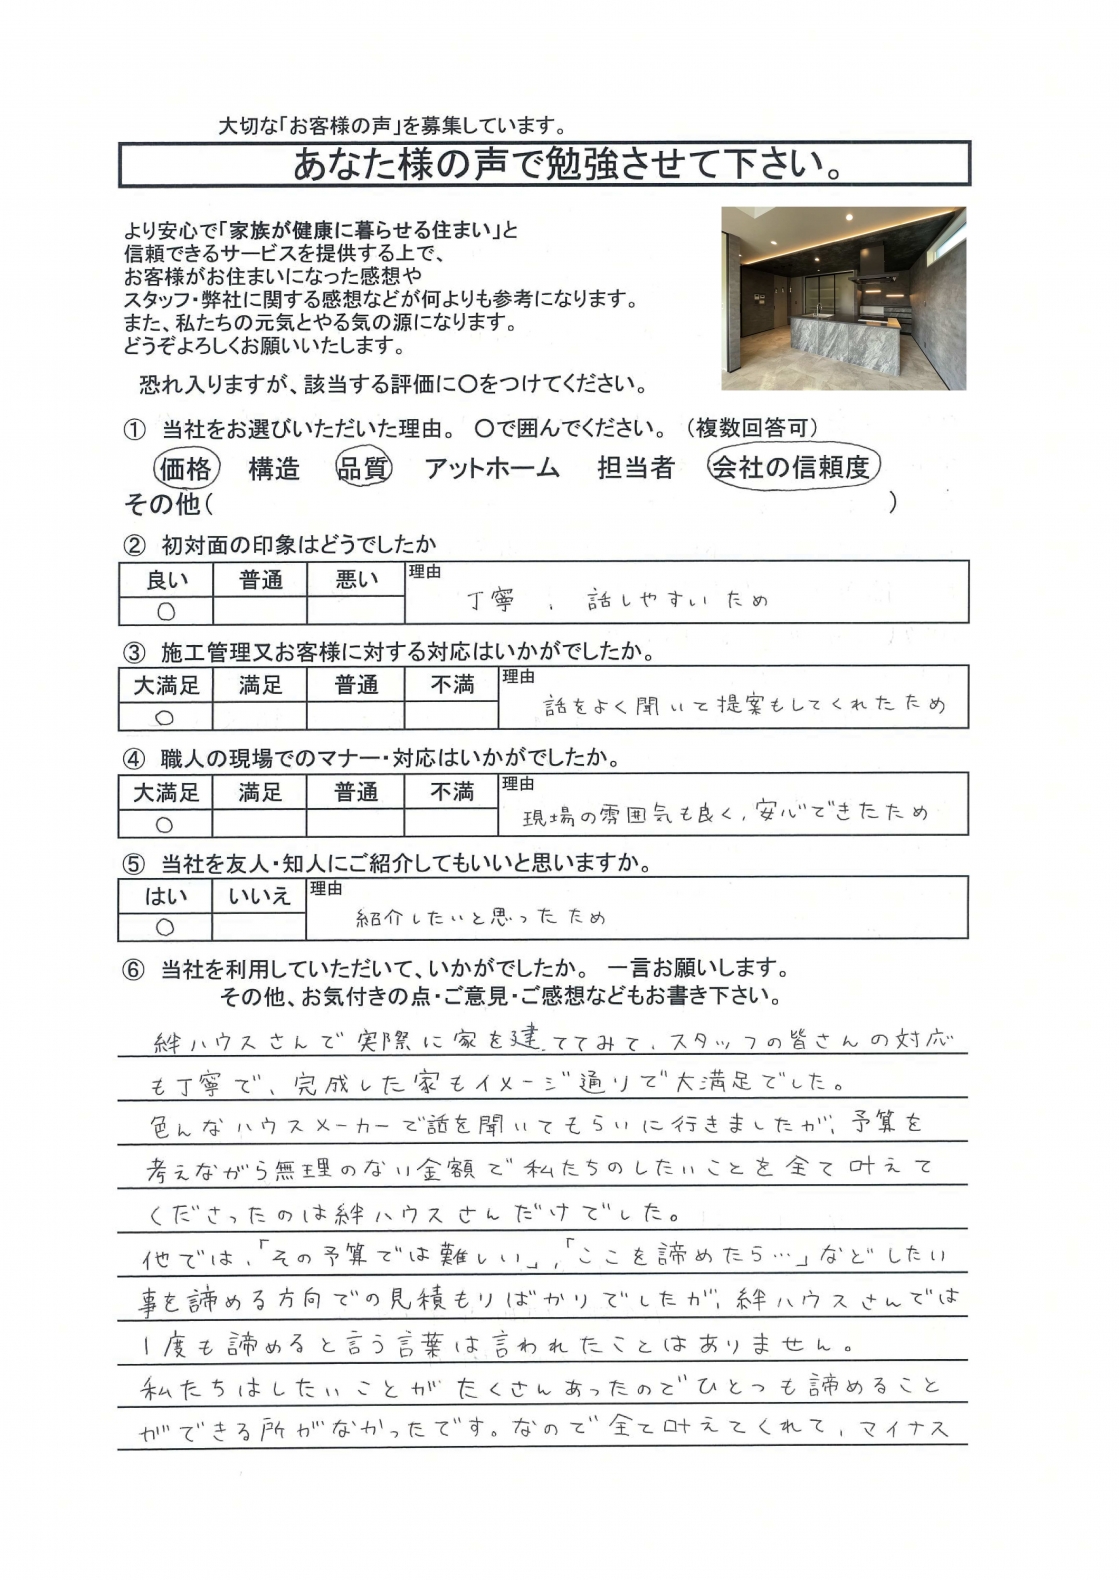 大切な「お客様の声」を募集しています。
あなた様の声で勉強させて下さい。
より安心で「家族が健康に暮らせる住まい」と
信頼できるサービスを提供する上で、
お客様がお住まいになった感想や
スタッフ・弊社に関する感想などが何よりも参考になります。
また、私たちの元気とやる気の源になります。
どうぞよろしくお願いいたします。
恐れ入りますが、該当する評価に〇をつけてください。
① 当社をお選びいただいた理由。 〇で囲んでください。 （複数回答可）
価格 構造 品質 アットホーム 担当者 会社の信頼度
その他（ ）
② 初対面の印象はどうでしたか
良い 普通 悪い 理由
〇 丁寧、話しやすいため
③ 施工管理又お客様に対する対応はいかがでしたか。
大満足 満足 普通 不満 理由
〇 話をよく聞いて提案もしてくれたため
④ 職人の現場でのマナー・対応はいかがでしたか。
大満足 満足 普通 不満 理由
〇 現場の雰囲気も良く、安心できたため
⑤ 当社を友人・知人にご紹介してもいいと思いますか。
はい いいえ 理由
〇 紹介したいと思ったため
⑥ 当社を利用していただいて、いかがでしたか。 一言お願いします。
その他、お気付きの点・ご意見・ご感想などもお書き下さい。
絆ハウスさんで実際に家を建ててみて、スタッフの皆さんの対応
も丁寧で、完成した家もイメージ通りで大満足でした。
色んなハウスメーカーで話を聞いてもらいに行きましたが、予算を
考えながら無理のない金額で私たちのしたいことを全て叶えて
くださったのは絆ハウスさんだけでした。
他では、「その予算では難しい」、「ここを諦めたら…」などしたい
事を諦める方向での見積もりばかりでしたが、絆ハウスさんでは
1度も諦めると言う言葉は言われたことはありません。
私たちはしたいことがたくさんあったのでひとつも諦めること
ができる所がなかったです。なので全て叶えてくれて、マイナス